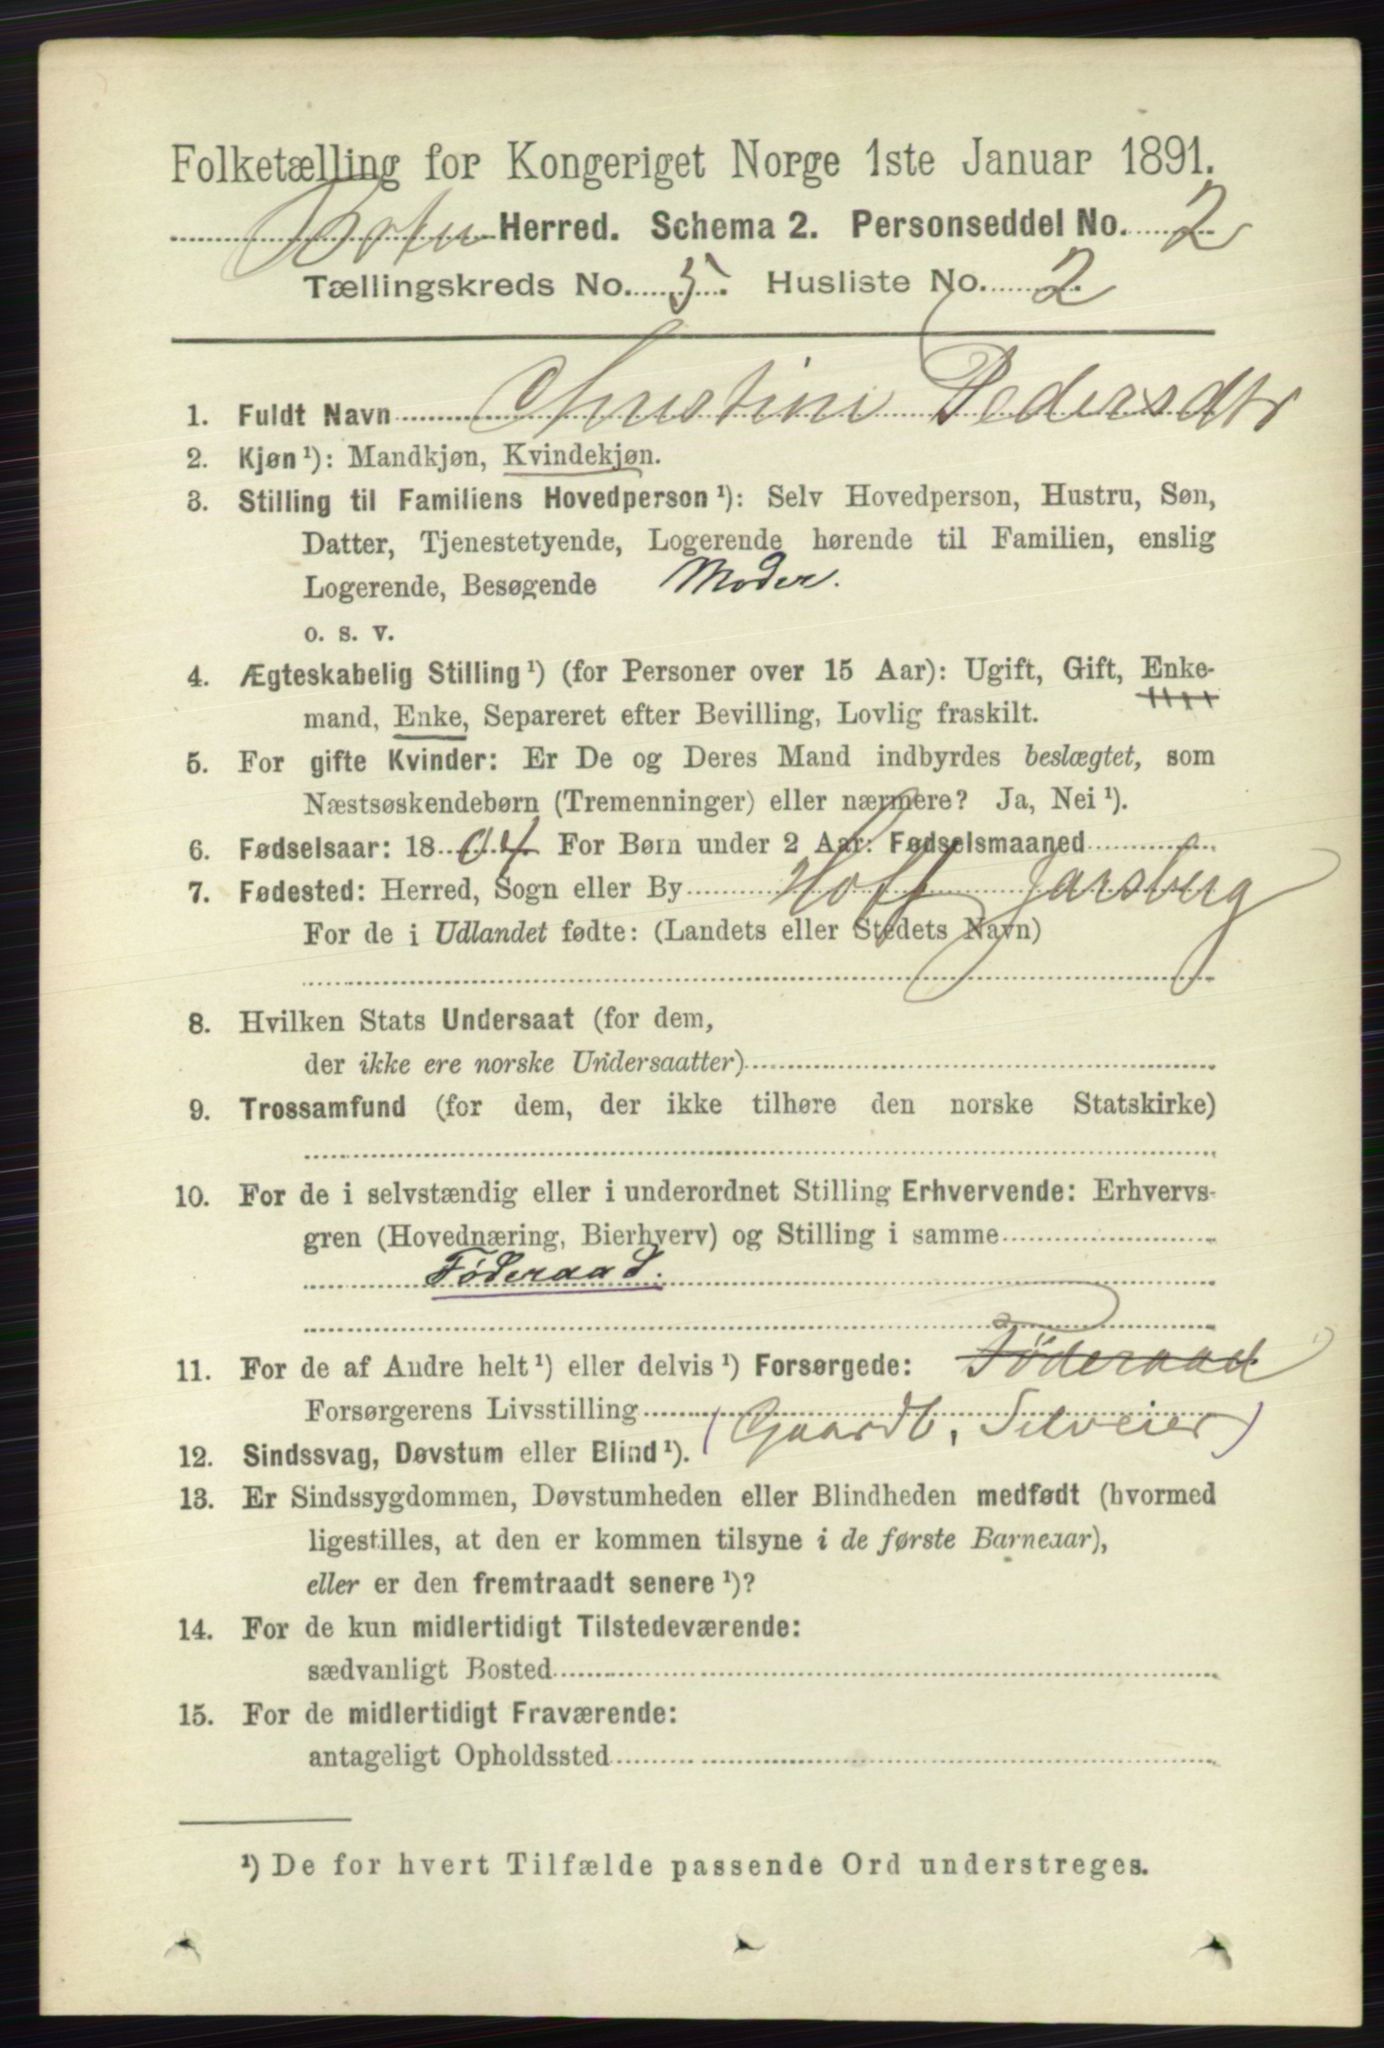 Folketælling for Kongeriget Norge 1ste Januar 1891.
Botne Herred. Schema 2. Personseddel No. 2
Tællingskreds No. 5. Husliste No. 2.
1. Fuldt Navn Christine Pedersdtr
2. Kjøn¹): Mandkjøn, Kvindekjøn.
3. Stilling til Familiens Hovedperson¹): Selv Hovedperson, Hustru, Søn,
Datter, Tjenestetyende, Logerende hørende til Familien, enslig
Logerende, Besøgende Moder.
o. s. v.
4. Ægteskabelig Stilling¹) (for Personer over 15 Aar): Ugift, Gift, Enke-
mand, Enke, Separeret efter Bevilling, Lovlig fraskilt.
5. For gifte Kvinder: Er De og Deres Mand indbyrdes beslægtet, som
Næstsøskendebørn (Tremenninger) eller nærmere? Ja, Nei¹).
6. Fødselsaar: 1804. For Børn under 2 Aar: Fødselsmaaned
7. Fødested: Herred, Sogn eller By Hoff Jarsberg
For de i Udlandet fødte: (Landets eller Stedets Navn)
8. Hvilken Stats Undersaat (for dem,
der ikke ere norske Undersaatter)
9. Trossamfund (for dem, der ikke tilhøre den norske Statskirke)
10. For de i selvstændig eller i underordnet Stilling Erhvervende: Erhvervs-
gren (Hovednæring, Bierhverv) og Stilling i samme
Føderaad.
11. For de af Andre helt¹) eller delvis¹) Forsørgede: Föderaad
Forsørgerens Livsstilling (Gaardb, Selveier)
12. Sindssvag, Døvstum eller Blind¹).
13. Er Sindssygdommen, Døvstumheden eller Blindheden medfødt (hvormed
ligestilles, at den er kommen tilsyne i de første Barneaar),
eller er den fremtraadt senere¹)?
14. For de kun midlertidigt Tilstedeværende:
sædvanligt Bosted
15. For de midlertidigt Fraværende:
antageligt Opholdssted
¹) De for hvert Tilfælde passende Ord understreges.